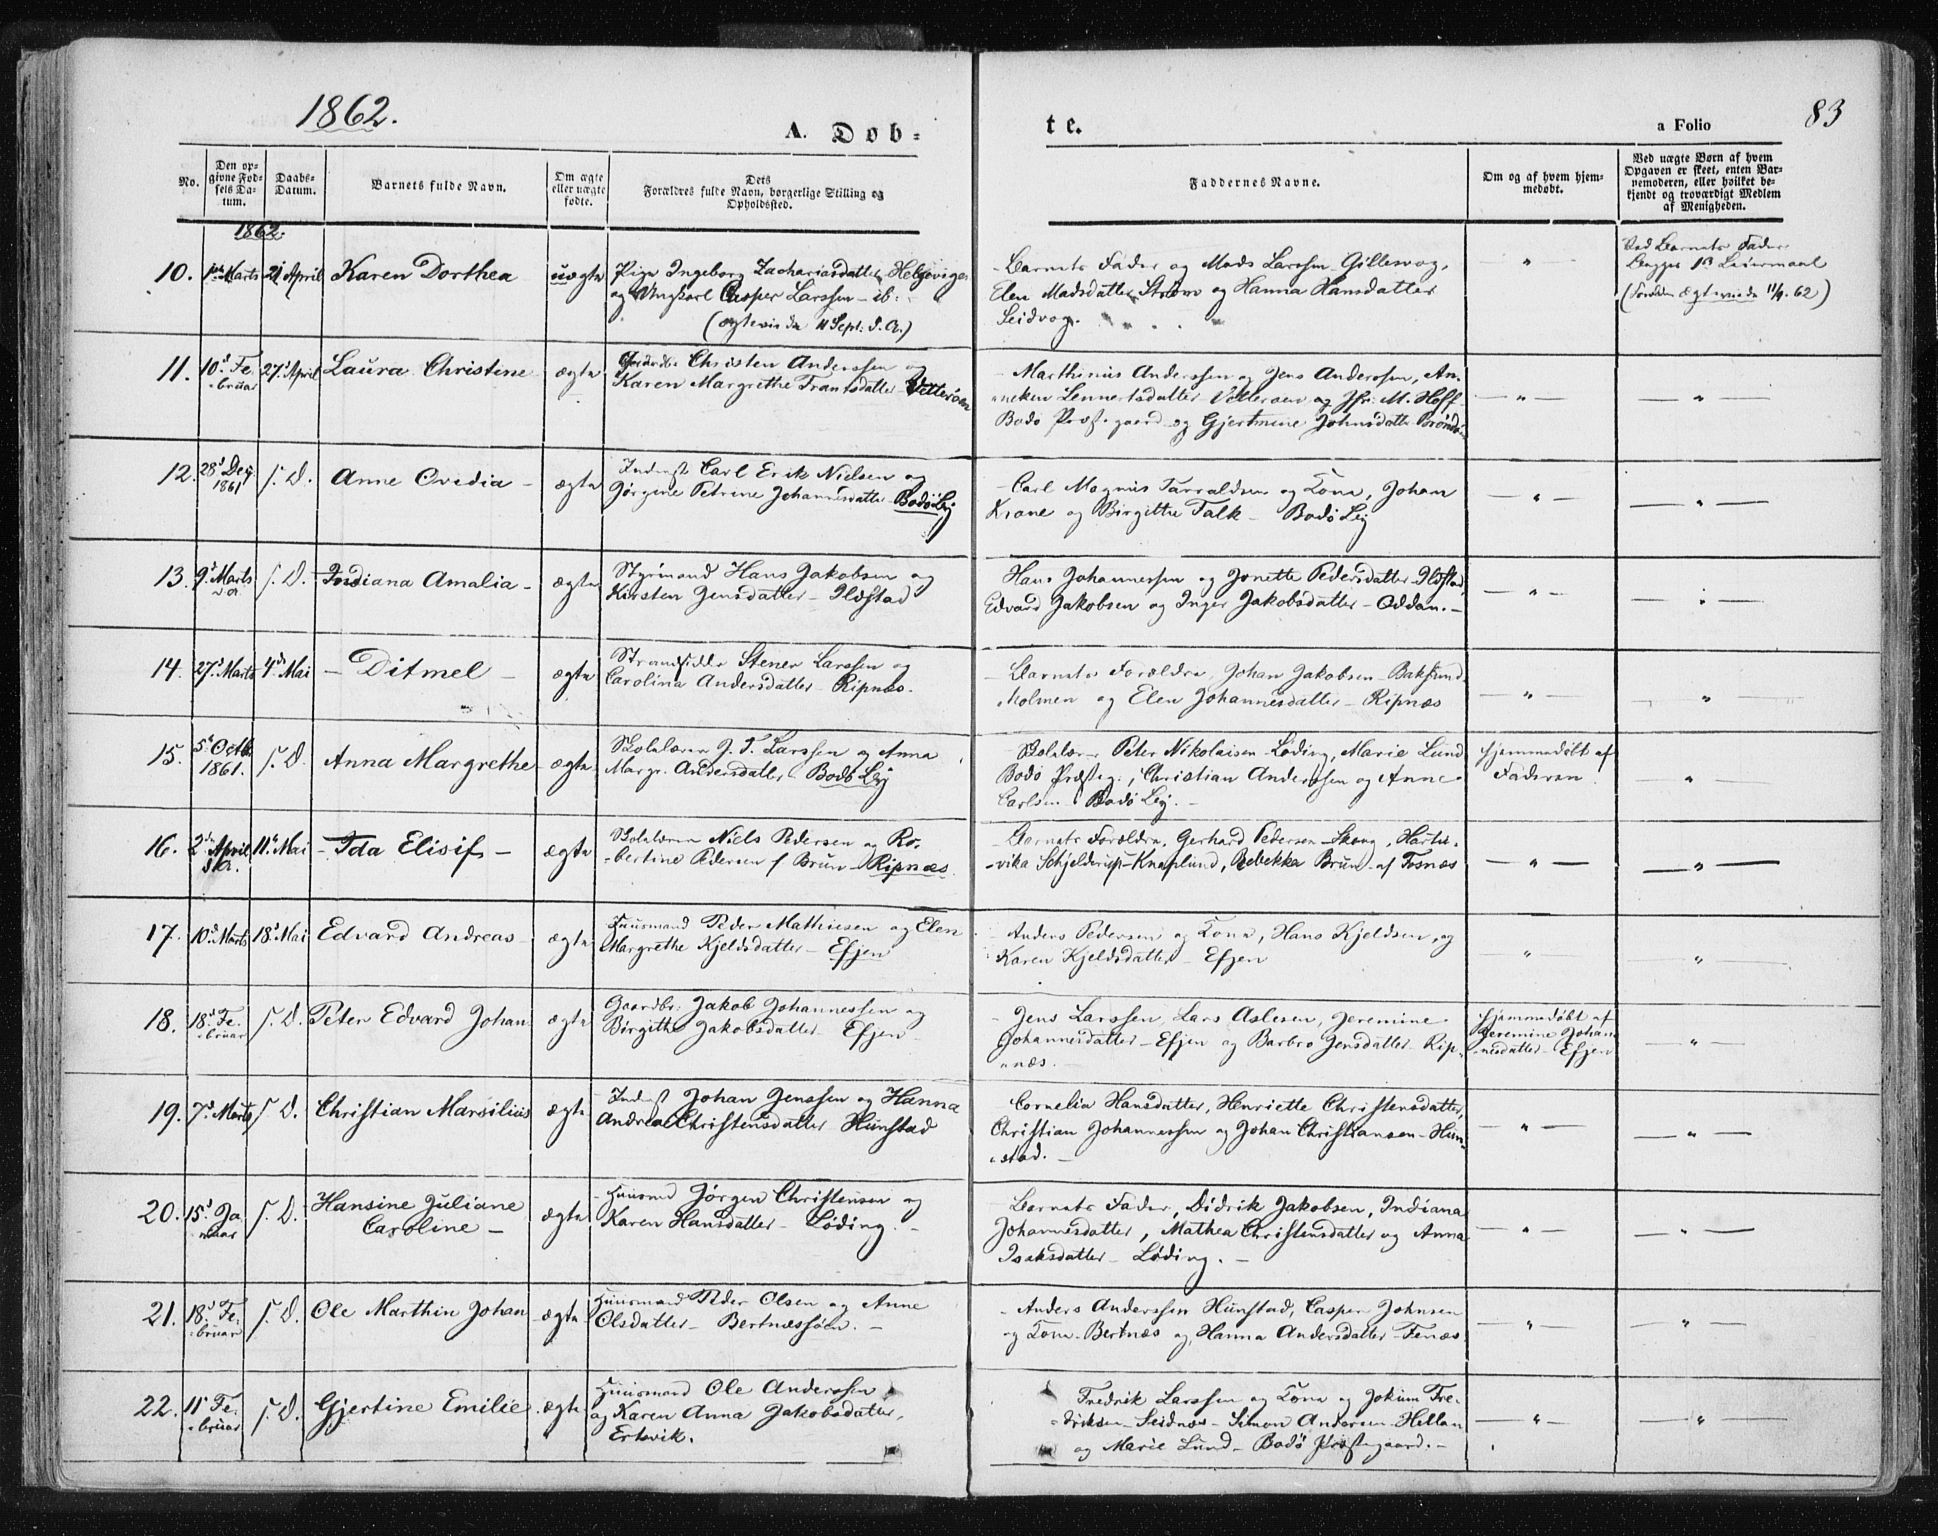 1862.
A. Døb-
te.
a Folio
83
No.
Den op-
givne Fød-
sels Da-
tum.
Daabs-
Datum.
Barnets fulde Navn.
Om ægte
eller uægte
fødte.
Dets
Forældres fulde Navn, borgerlige Stilling og
Opholdssted.
Faddernes Navne.
Om og af hvem hjem-
medøbt.
Ved uægte Børn af hvem
Opgaven er skeet, enten Bar-
nemoderen, eller hvilket be-
kjendt og troværdigt Medlem
af Menigheden.
1862.
10. Marts 21 April Karen Dorthea uægte Pige Ingeborg Zachariasdatter
og Ungkarl Casper Larssen - ib:
(ægteviede 11 Sept: d. A.)
Barnets Fader og Mads Larssen - Gillesvog,
Elen Madsdatter Strøm og Hanna Hansdatter
Seidvog.
"
Barnets Fader
Leiermaal
(Forældre ægteviede 11/9. 62)
11. 10d Fe-
bruar 27d April Laura Christine ægte Christen Anderssen og
Karen Margrethe Frantsdatter Vetterøen
Marthinus Anderssen og Jens Anderssen, An-
neken Lennertsdatter Vetterøen og Jfr. M. Hoff
Bodø Præstegaard og Gjertmine Johnsdatter
— " —
— " —
12. 28d Dec.
1861 s. D. Anne Ovedia - ægte Inderst Carl Erik Nielsen og
Jørgine Petrine Johannesdatter Bodø Lej
- Carl Magnus Tarraldsen og Kone, Johan
Krane og Birgitte Falk - Bodø Lej
— " —
— " —
13. 9d Marts
d. A. s. D. Indiana Amalia - ægte Styrmand Hans Jakobsen og
Kirsten Jensdatter - Ildstad
Hans Johannessen og Jonette Pedersdatter - Ildstad,
Edvard Jakobsen og Inger Jakobsdatter - Oddan. -
— " —
— " —
14. 27d Marts 4de Mai - Ditmel - ægte Strandsidder Stener Larssen og
Carolina Andersdatter - Ripnæs.
- Barnets Forældre, Johan Jakobsen - Baksund
Molmen og Elen Johannesdatter - Ripnæs
— " —
"
15. 5d Octb.
1861. s. D. Anna Margrethe ægte Skolelærer J. T. Larssen og Anna
Margr. Andersdatter Bodø Lej
Skolelær. Peter Nikolaisen - Løding, Marie Lund
Bodø Præsteg., Christian Anderssen og Anne
Carlsen - Bodø Lej. -
Hjemmedøbt af
Faderen
"
16. 2den April
d. A. 11te Mai - Ida Elisif - ægte Skolelærer Niels Pedersen og Ro-
bertine Pedersen f Brun - Ripnæs.
- Barnets Forældre, Gerhard Pedersen - Skaug, Hartu-
vika Schjelderup - Knaplund, Rebekka Brun - af Fosnæs
— " —
— " —
17. 10d Marts 18d Mai Edvard Andreas - ægte Huusmand Peder Mathiesen og Elen
Margrethe Kjeldsdatter - Efjen
- Anders Pedersen og Kone, Hans Kjeldsen, og
Karen Kjeldsdatter - Efjen
"
"
18. 18d Fe-
bruar s. D. Peter Edvard Johan ægte Gaardbr. Jakob Johannessen og
Birgitte Jakobsdatter Efjen
- Jens Larssen, Lars Aslesen, Jeremine
Johannesdatter - Efjen og Barbro Jensdatter - Rip-
næs.
Hjemmedøbt af
Jeremine Johan-
nesdatter - Efjen
"
19. 7d Marts s. D. Christian Marsilius ægte Inderst Johan Jenssen og Hanna
Andrea Christensdatter Hunstad
Cornelia Hansdatter, Henriette Christensdatter,
Christian Johannessen og Johan Christiansen - Hun-
stad. -
— " —
— " —
20. 15d Ja-
nuar s. D. Hansine Juliane
Caroline - ægte Huusmd Jørgen Christensen og
Karen Hansdatter - Løding. -
- Barnets Fader, Didrik Jakobsen, Indiana
Johannesdatter, Mathea Christensdatter og Anna
Isaksdatter - Løding. -
— " —
— " —
21. 18d Fe-
bruar s. D. Ole Marthin Johan ægte Huusmand Peder Olsen og Anne
Olsdatter - Bertnæssøen. -
- Anders Anderssen Hunstad, Casper Johnsen
og Kone - Bertnæs og Hanna Andersdatter - Fenæs
— " —
— " —
22. 11te Fe-
bruar s. D. Gjertine Emilie ægte Huusmand Ole Anderssen
og Karen Anna Jakobsdatter,
Ertsvik.
Fredrik Larssen og Kone og Jokum Fre-
driksen - Seidnæs - Simon Andersen - Hellan
og Marie Lund - Bodø Præstegaard. -
— " —
— " —